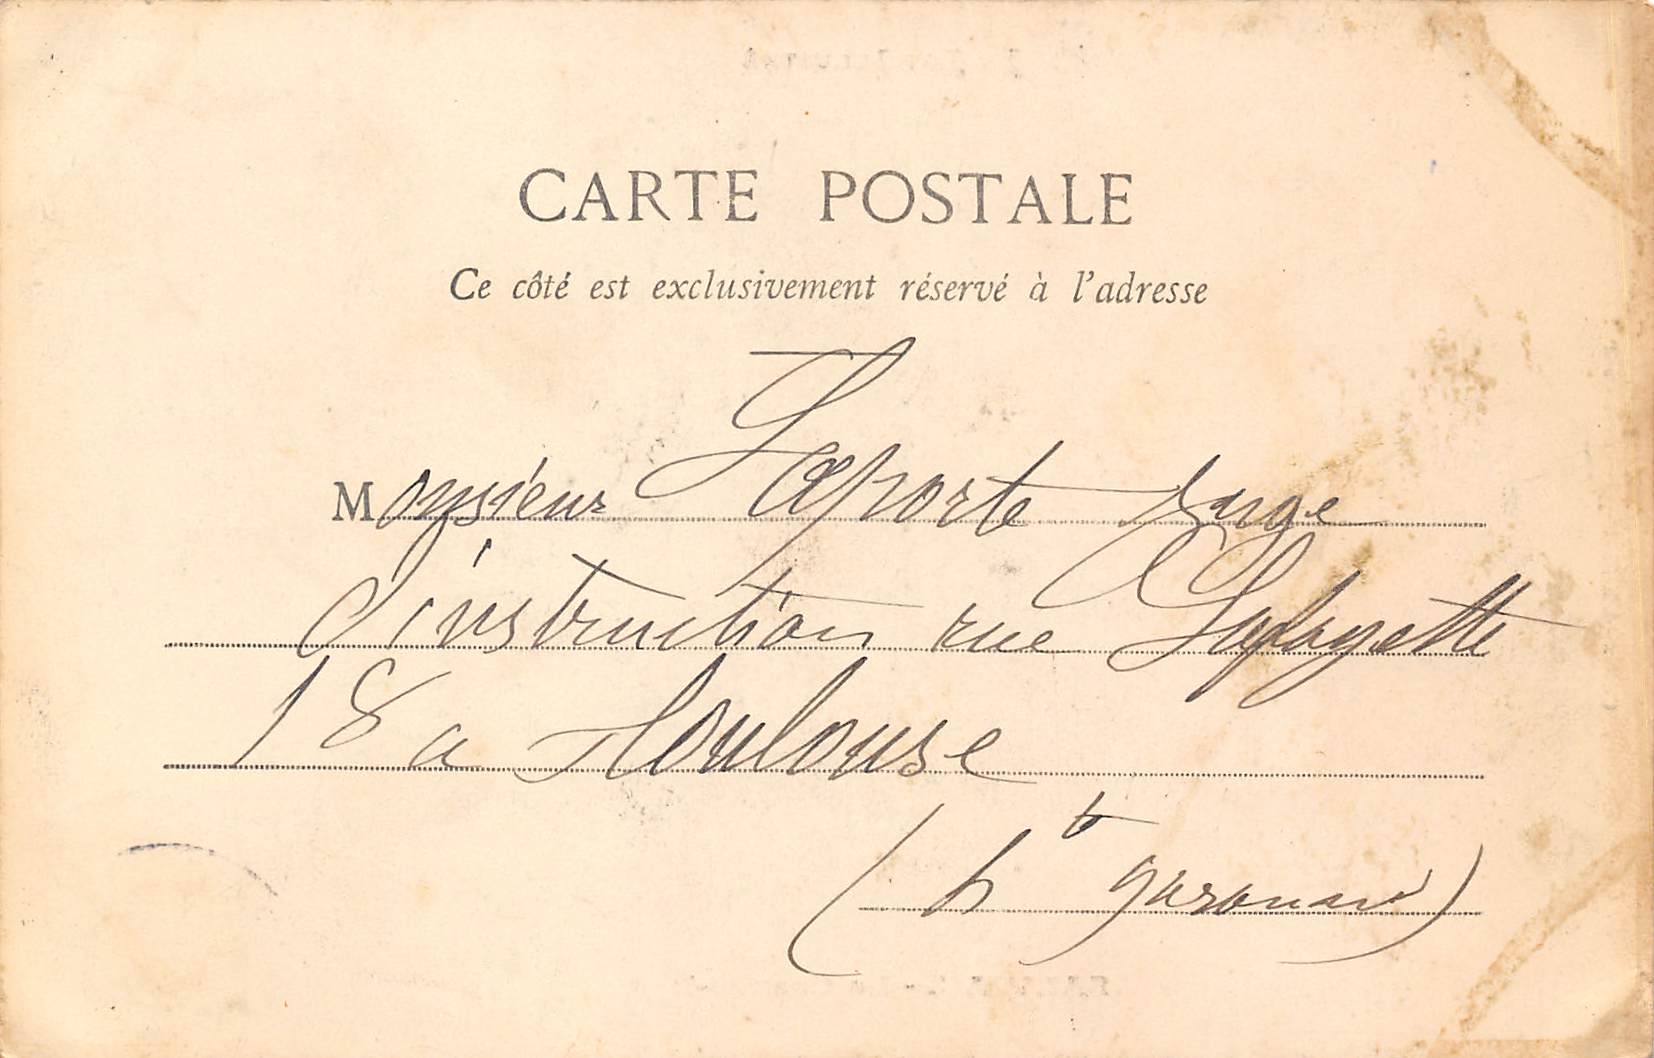 CARTE POSTALE
Ce côté est exclusivement réservé à l'adresse
Monsieur Laporte
d'instruction rue Lafayette
18 a Toulouse
(hte garonne)